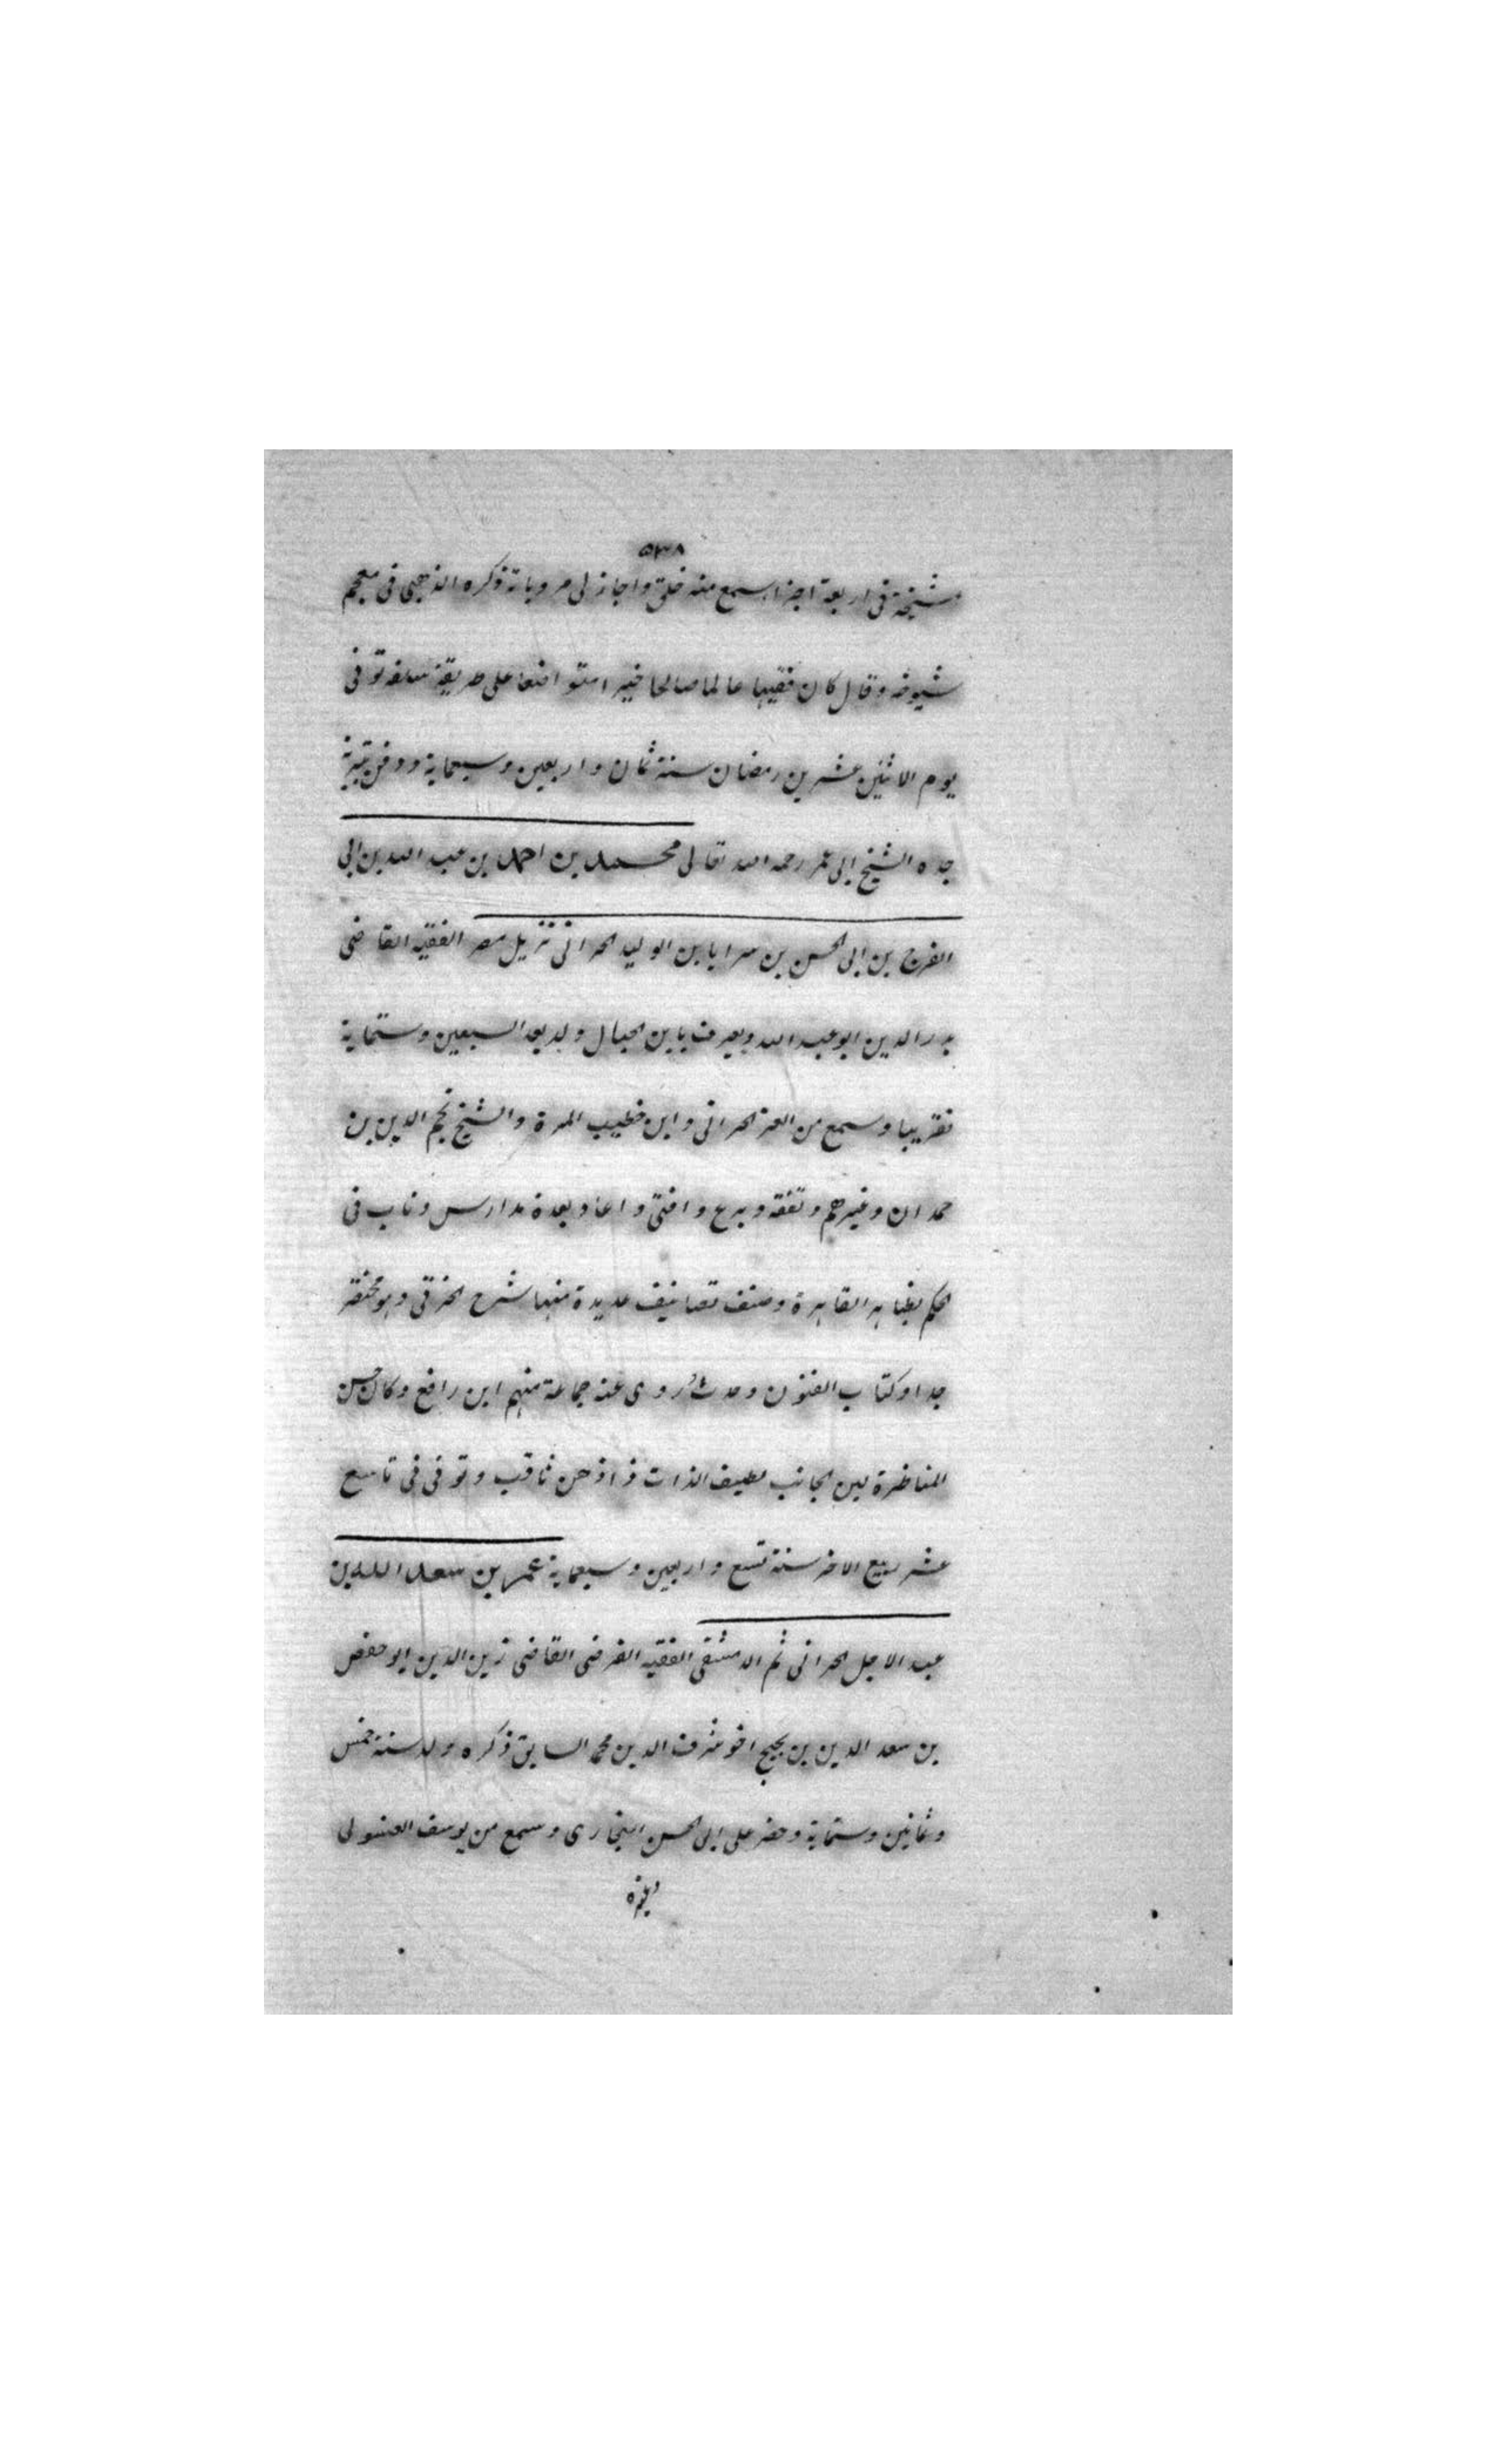 ٥٣٨
مشيخة في اربعة اجزا سمع منه خلق واجاز لي مروياته ذكره الذهبي في معجم
شيوخه وقال كان فقيها عالما صالحا خيرا متواضعا على طريقة سلفه توفي
يوم الاثنين عشرين رمضان سنة ثمان واربعين وسبعماية ودفن بتربة
جده الشيخ ابي عمر رحمه الله تعالى محمد بن احمد بن عبد الله بن ابي
الفرج بن ابي الحسن بن سرايا بن الوليد الحراني نزيل مصر الفقيه القاضي
بدر الدين ابو عبد الله ويعرف بابن الحبال ولد بعد السبعين وستماية
تقريبا وسمع من العز الحراني وابن خطيب المزة والشيخ نجم الدين بن
حمدان وغيرهم وتفقه وبرع وافتى واعاد بعدة مدارس وناب في
الحكم بظاهر القاهرة وصنف تصانيف عديدة منها شرح الخرقي وهو مختصر
جدا وكتاب الفنون وحدث وروى عنه جماعة منهم ابن رافع وكان حسن
المناظرة لين الجانب لطيف الذات ذا ذهن ثاقب وتوفي في تاسع
عشر ربيع الاخر سنة تسع واربعين وسبعماية عمر بن سعد الله بن
عبد الاحد الحراني ثم الدمشقي الفقيه الفرضي القاضي زين الدين ابو حفص
بن سعد الدين بن بخيخ اخو شرف الدين محمد السابق ذكره ولد سنة خمس
وثمانين وستماية وحضر على ابي الحسن البخاري وسمع من يوسف الغسولي
وغيره